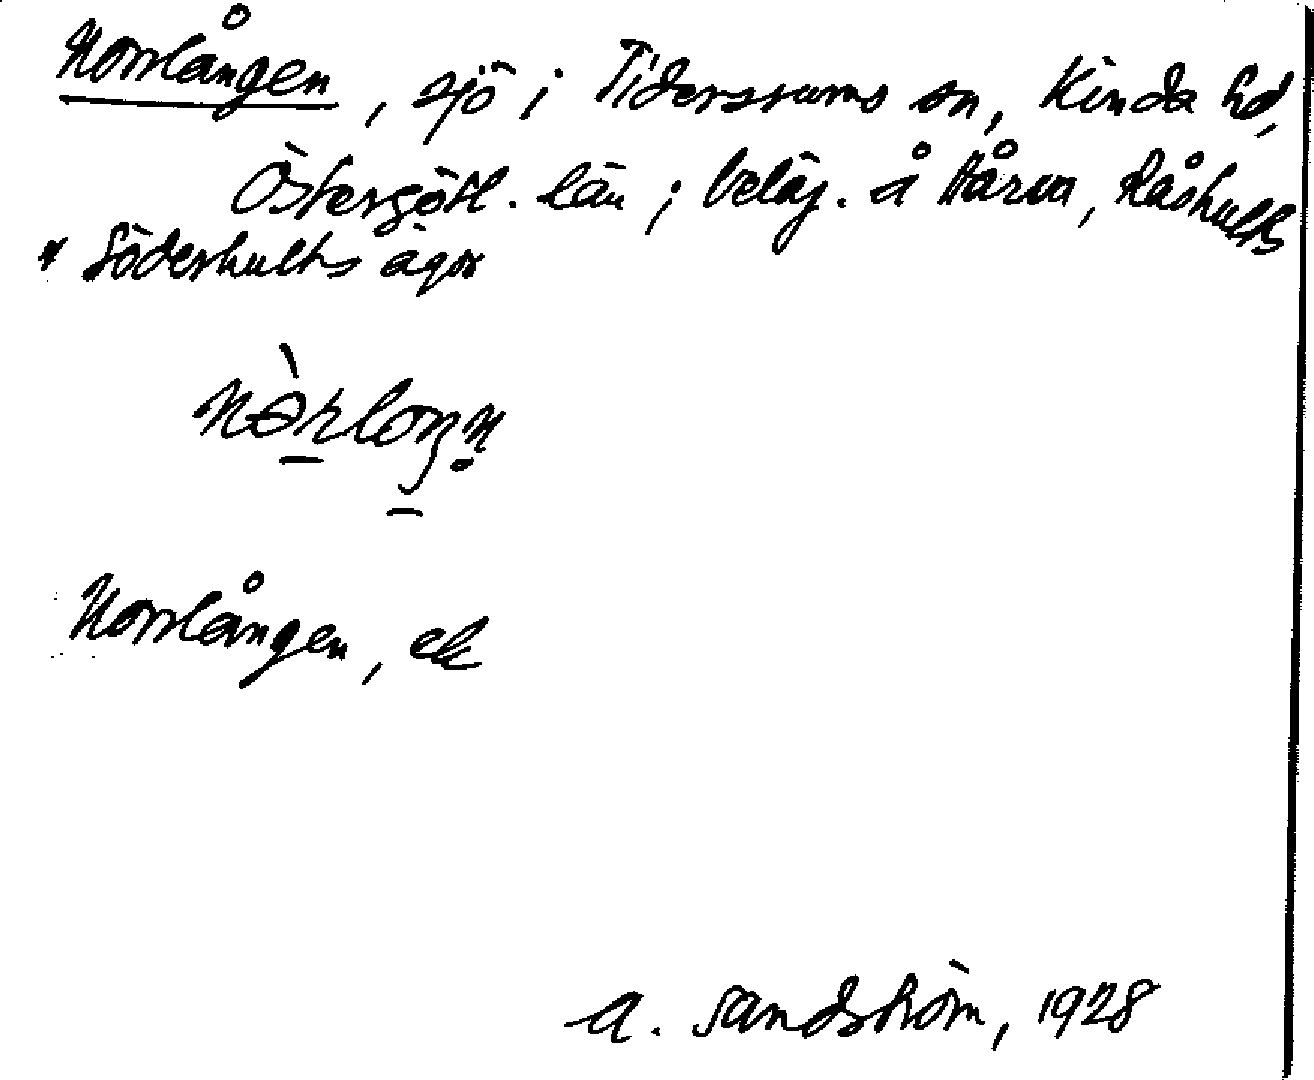 Norrlången, sjö i Tidersrums sn, Kinda hd,
Östergötl. län; beläg. å Råshults
& Söderhults ägor
Norrlången, ek
A. Sandström, 1928